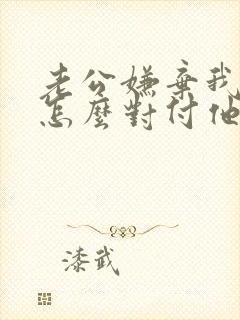 老公嫌棄我
怎麼對付他
漆武